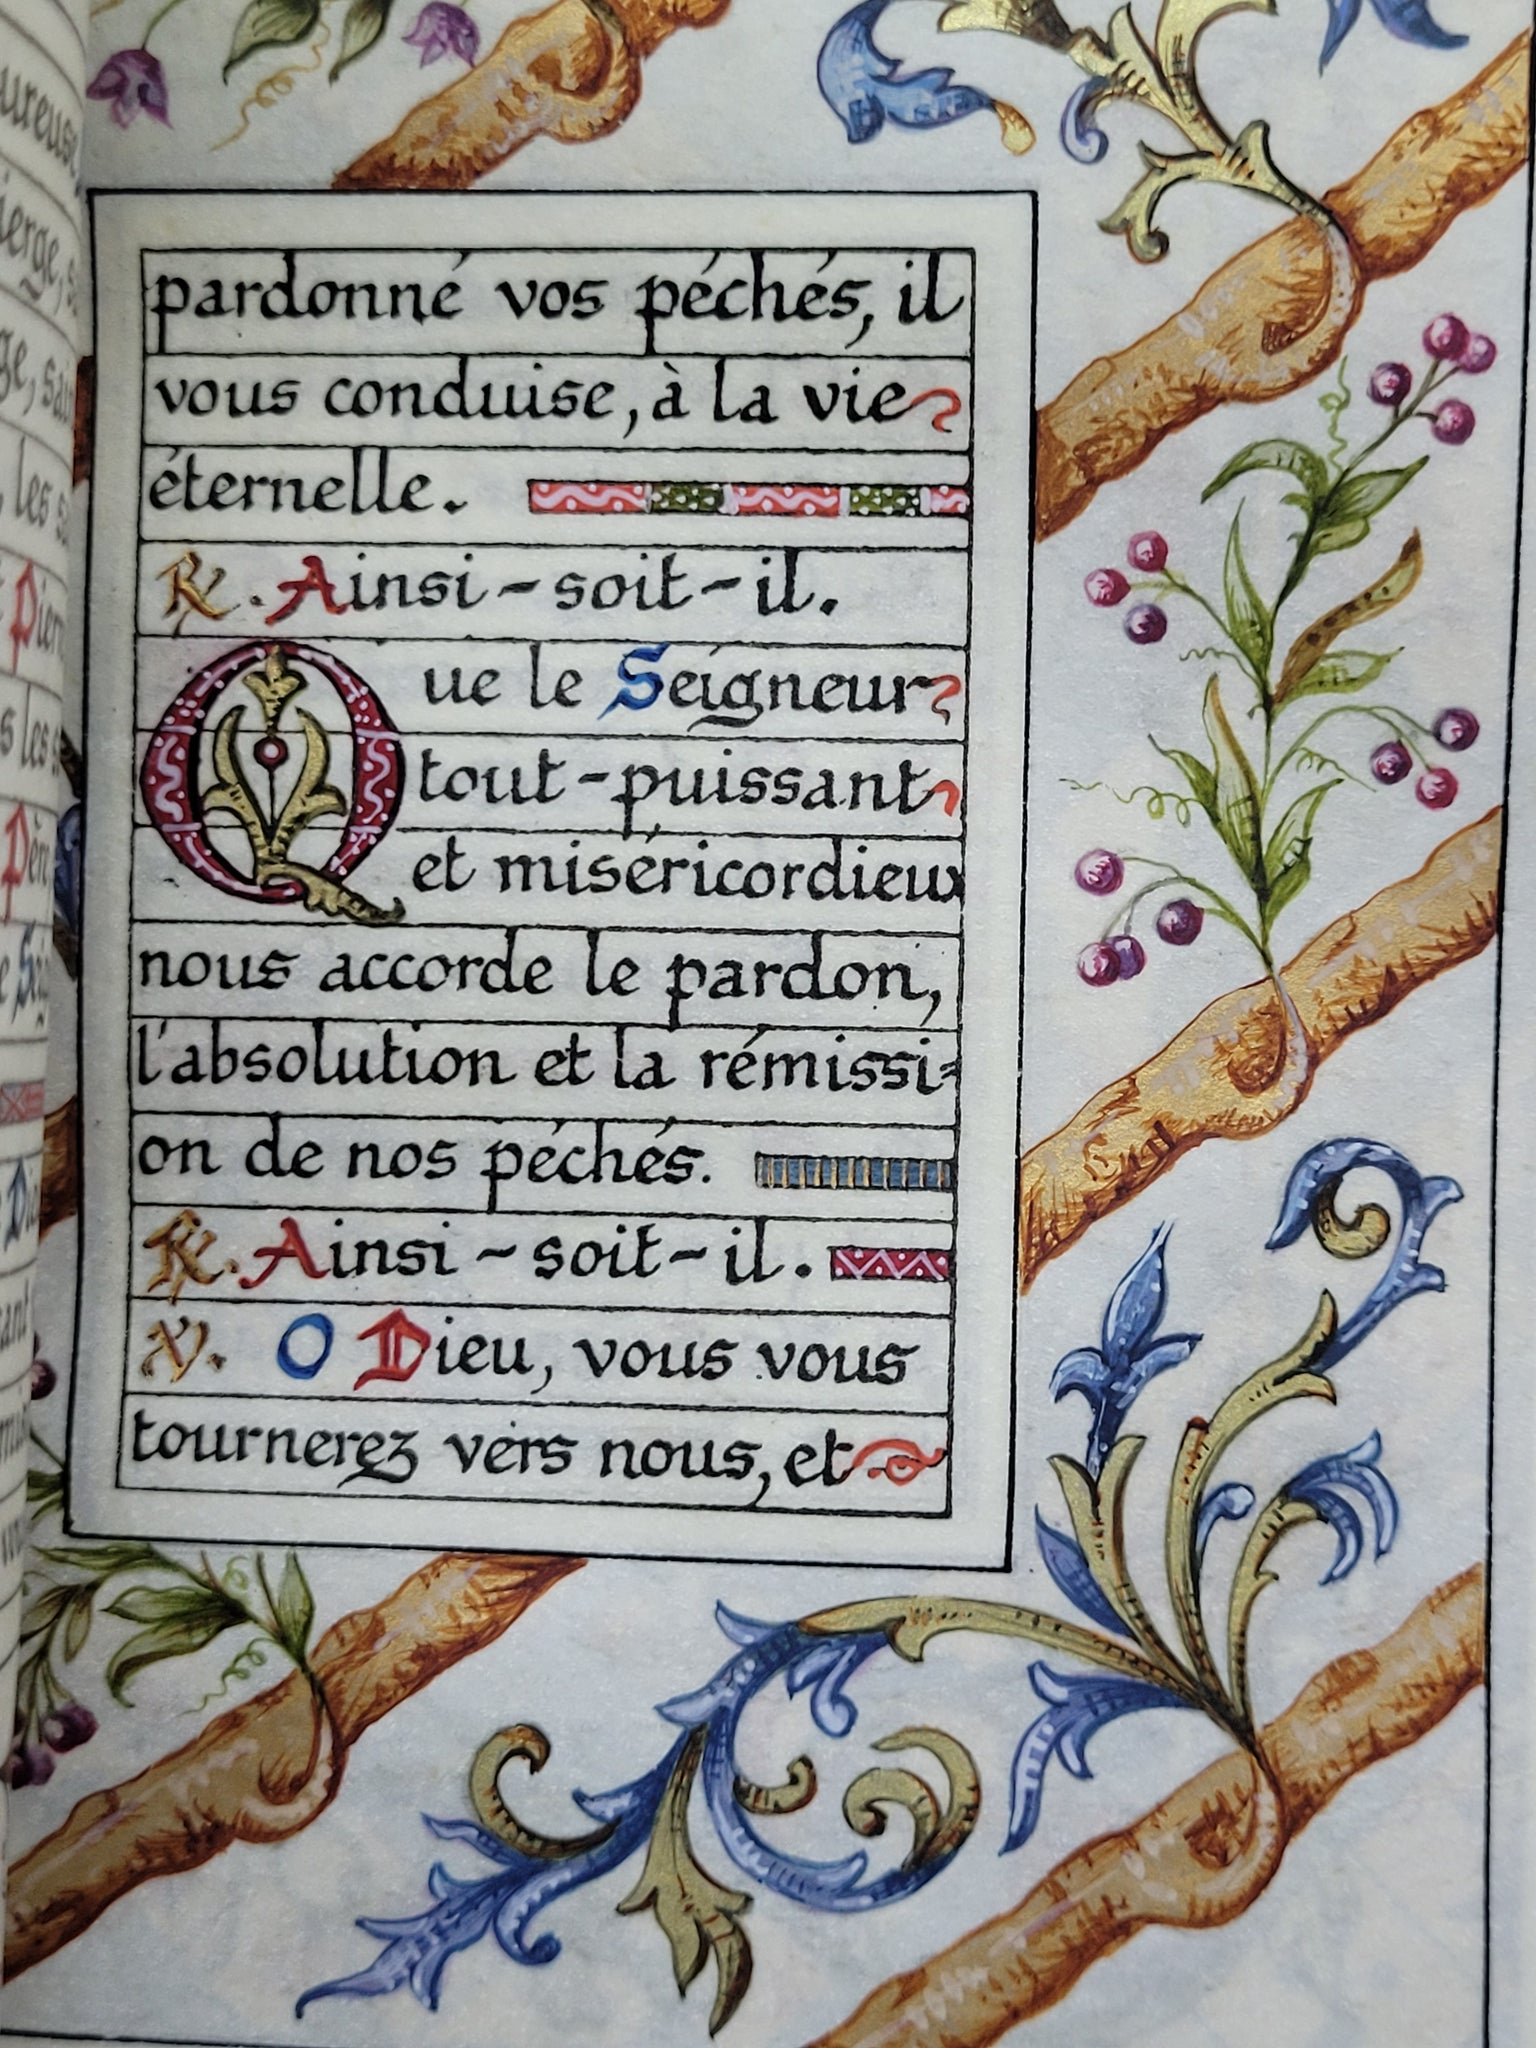 pardonné vos péchés, il
vous conduise, à la vie
éternelle.
℟. Ainsi-soit-il.
Que le Seigneur
tout-puissant
et miséricordieux
nous accorde le pardon,
l'absolution et la rémissi-
on de nos péchés.
℟. Ainsi-soit-il.
℣. O Dieu, vous vous
tournerez vers nous, et